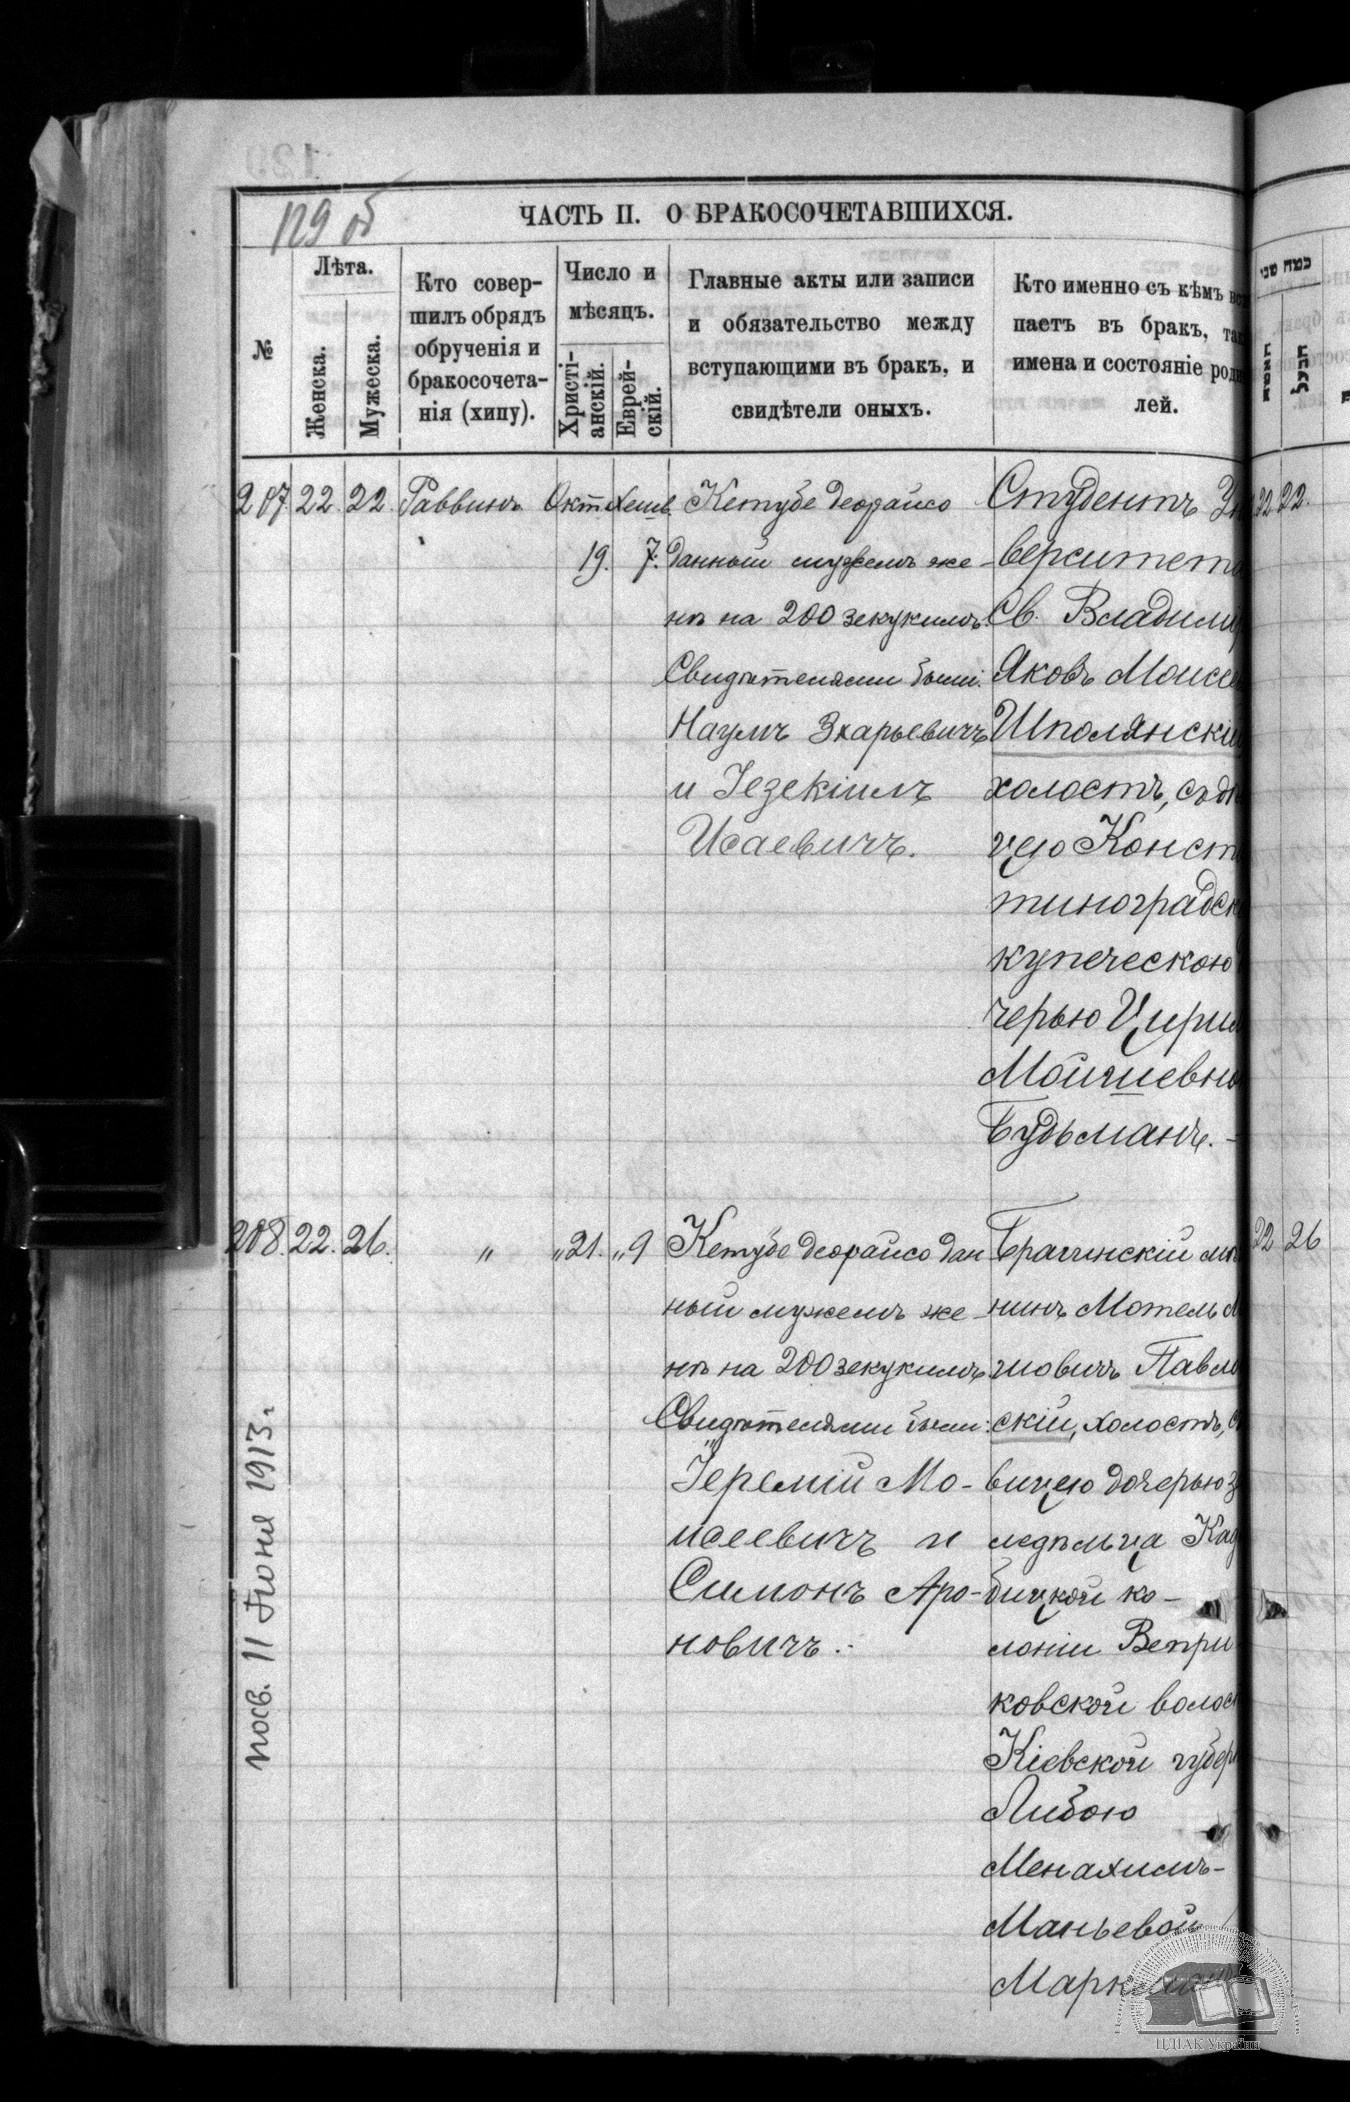 129 об
ЧАСТЬ II. О БРАКОСОЧЕТАВШИХСЯ.
№
Лѣта.
Женска.
Мужеска.
Кто совер-
шилъ обрядъ
обрученія и
бракосочета-
нія (хипу).
Число и
мѣсяцъ.
Христі-
анскій.
Еврей-
скій.
Главные акты или записи
и обязательство между
вступающими въ бракъ, и
свидѣтели оныхъ.
Кто именно съ кѣмъ вс
паетъ въ бракъ, так
имена и состояніе род
лей.
207. 22. 22. Раввинъ Окт. Хешв.
19. 7.
Кетубе деорайсо
данный мужемъ же-
нѣ на 200 зекукимъ.
Свидѣтелями были:
Наумъ Зхарьевичъ
и Іезекіиль
Исаевичъ.
Студентъ Ун
верситета
Св. Владимі
Яковъ Моисе
Шполянскі
холостъ, съ дѣ
цею Конст
тиноградск
купеческою
черью Цири
Мойшевно
Будьманъ. -
22 22.
208. 22. 26. „ „ 21. „ 9
Кетубе деорайсо дан
ный мужемъ же-
нѣ на 200 зекукимъ
Свидѣтелями были:
Іеремій Мо-
исеевичъ и
Симонъ Аро-
новичъ.-
Брагинскій мѣ
нинъ Мотель М
шовичъ Павло
скій, холостъ, с
вицею дочерью з
медѣльца Ка
бицкой ко-
лоніи Вепри
ковской волос
Кіевской губер
Либою
Менахимъ-
Маньевой
Марк
22 26
посв. 11 Іюня 1913 г.
ЦДІАК України